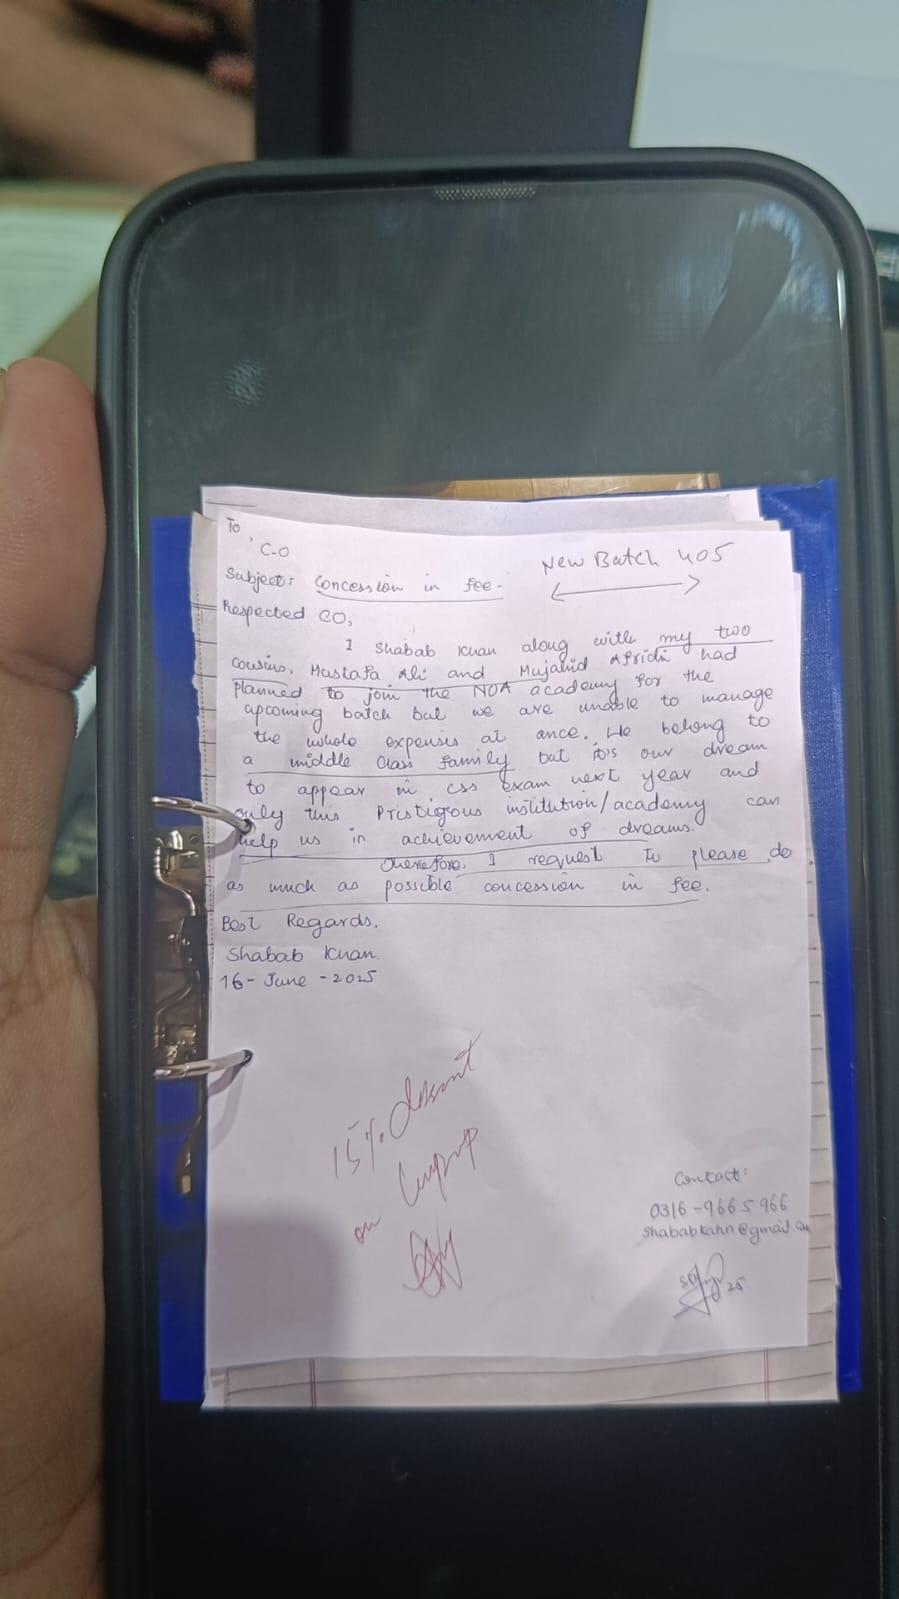 To,
C.O
New Batch 405
Subject: Concession in fee.
Respected CO,
I Shabab Khan along with my two
cousins, Mustafa Ali and Mujahid Afridi had
planned to join the NOA academy for the
upcoming batch but we are unable to manage
the whole expenses at once. We belong to
a middle class family but it's our dream
to appear in css exam next year and
only this Pristigous institution/academy can
help us in achievement of dreams.
Therefore, I request to please do
as much as possible concession in fee.
Best Regards.
Shabab Khan.
16-June-2025
15%
on
Contact:
0316-9665966
shababkahn@gmail.com